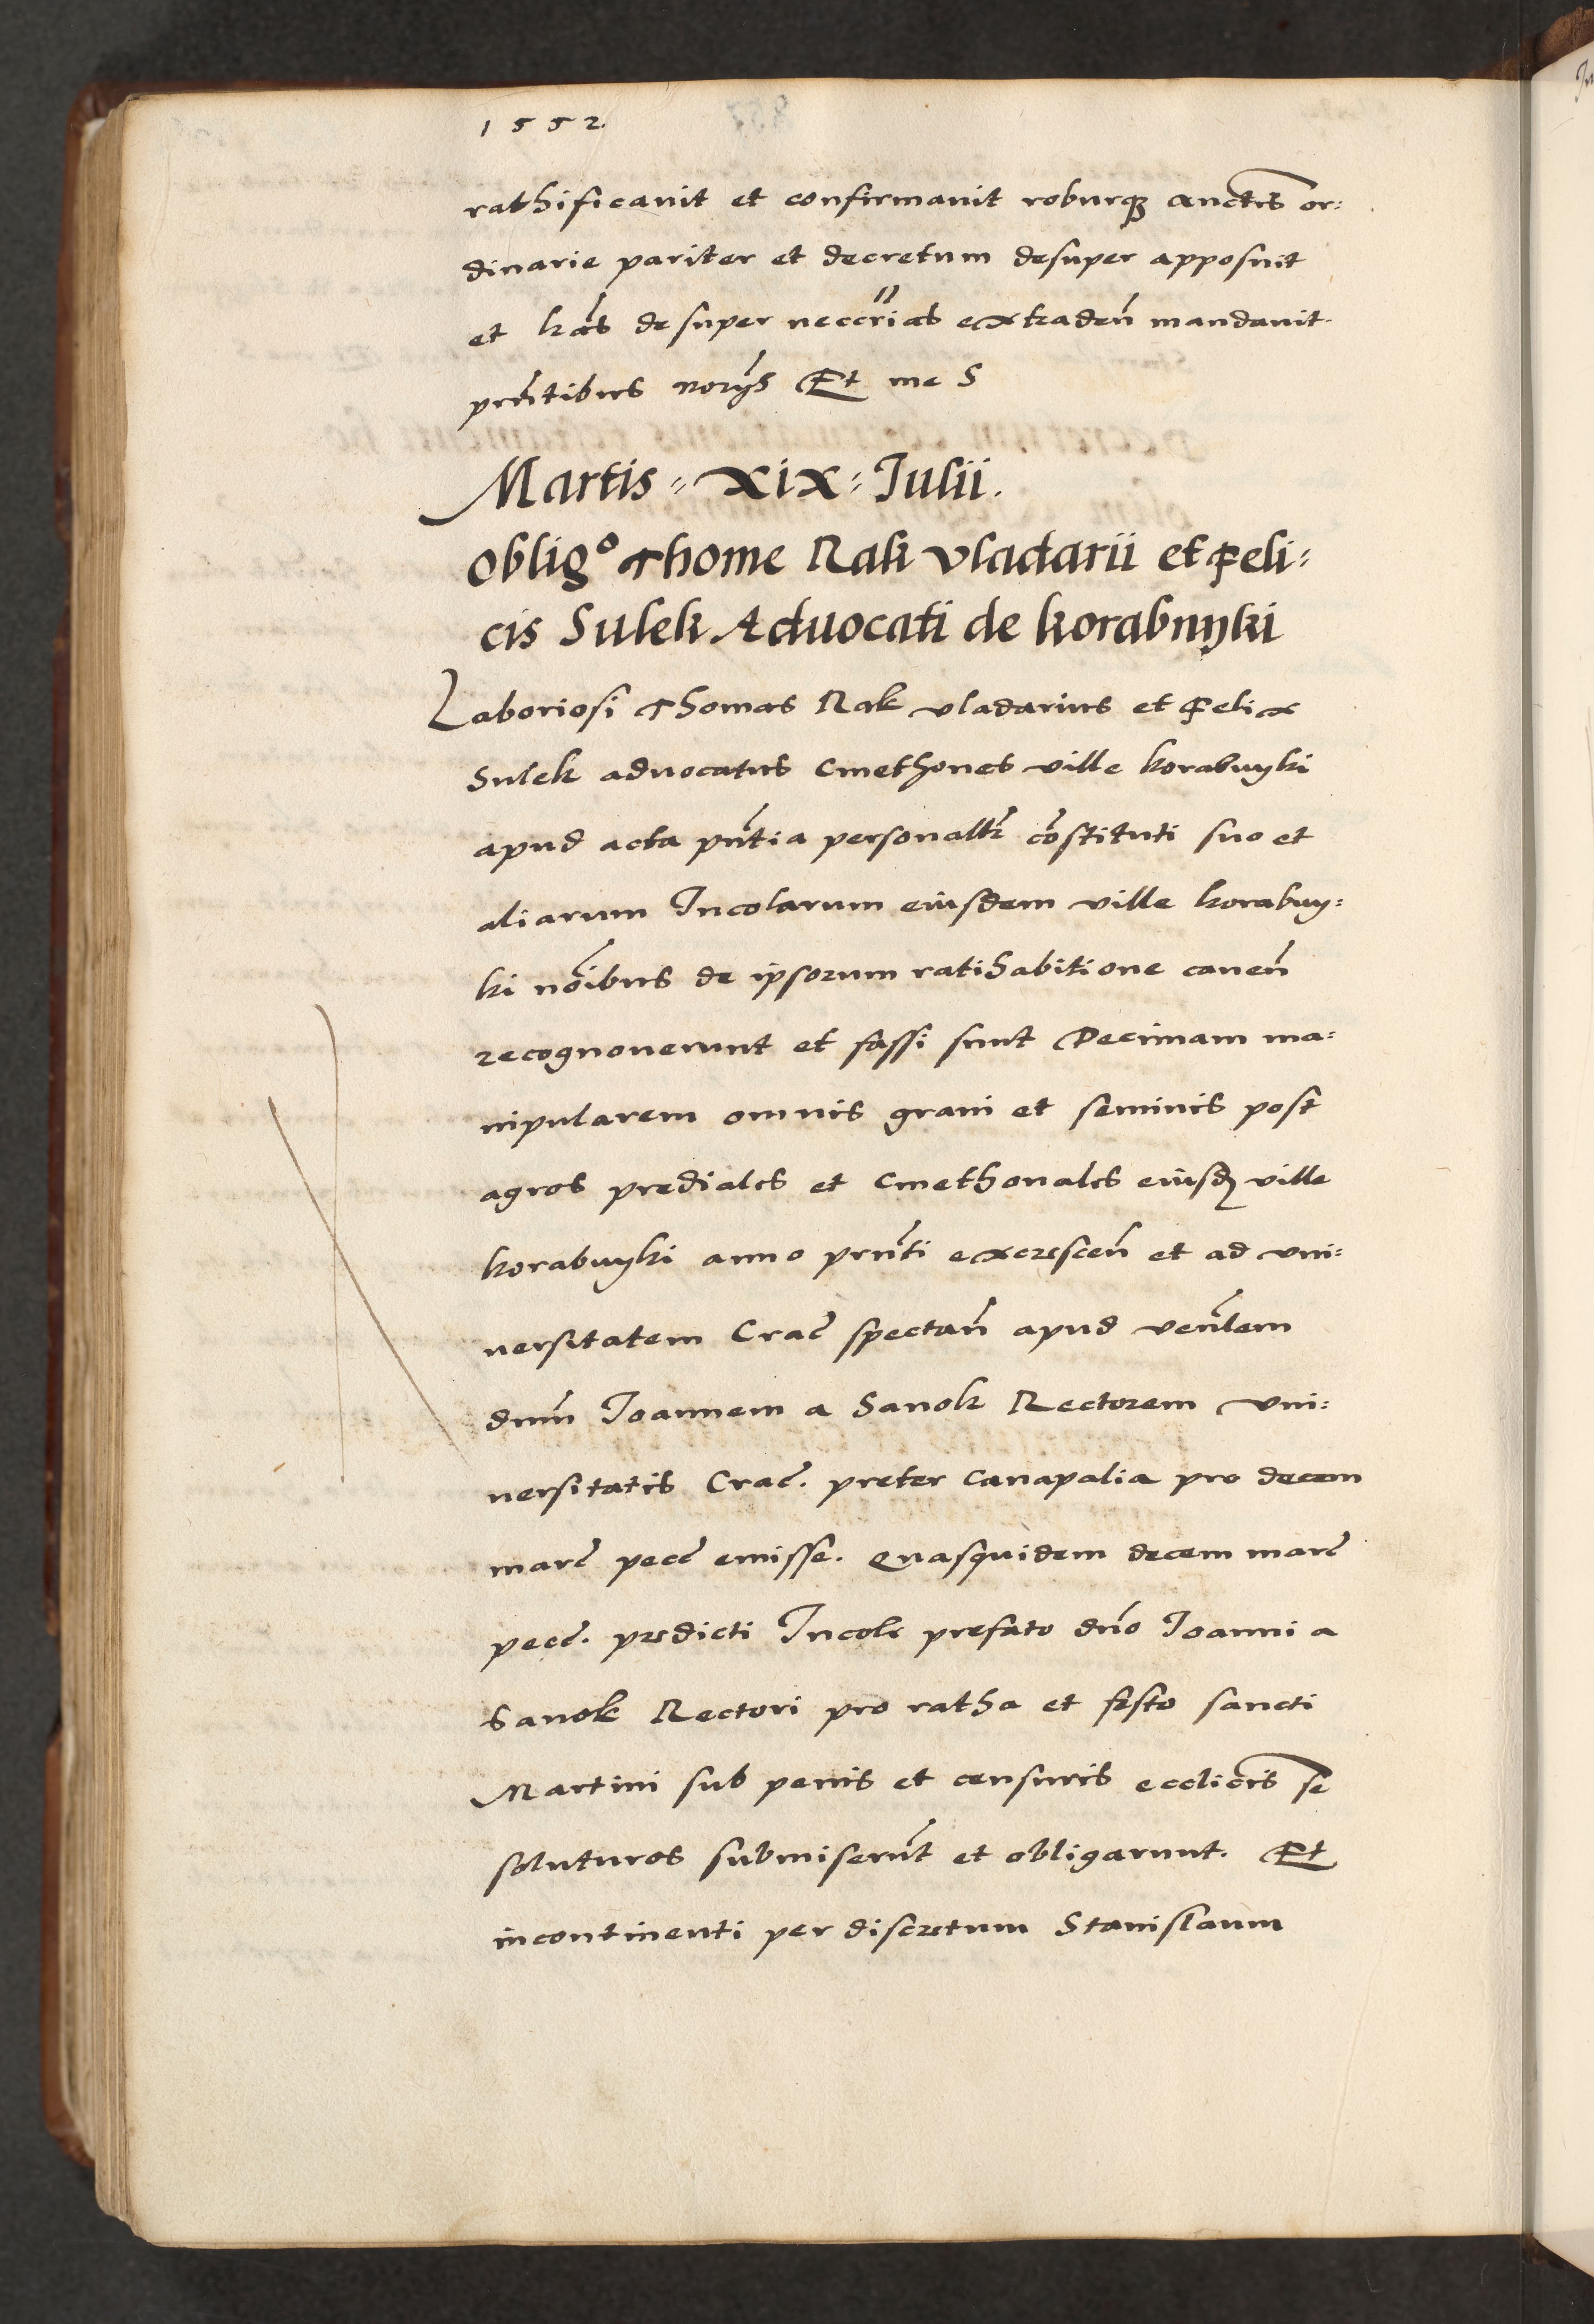 1552.
rathificavit et confirmavit roburq₃ auctis or:
dinarie pariter et decretum desuper apposuit
et l̃ras desuper neccrias extraden̄ mandavit.
prn̄tibus norijs Et me S
Martis = xix = Julii.
Oblig° Thome Rak vladarii et Feli=
cis Sulek Aduocati de korabnyki
Laboriosi Thomas Rak vladarius et Felix
Sulek aduocatus Cmethones ville korabnyki
apud acta pn̄tia personaltr̄ cōstituti suo et
aliarum Incolarum eiusdem ville korabny:
ki nōibus de ipsorum ratihabitione caven̄
recognoverunt et fassi sunt Decimam ma:
nipularem omnis grani et seminis post
agros prediales et Cmethonales eiusd₃ ville
korabnyki anno prn̄ti excrescen̄ et ad vni:
versitatem Crac̄ spectan̄ apud ven̄lem
dnm̄ Joannem a Sanok Rectorem vni:
versitatis Crac̄. preter Canapalia pro decem
marc̄ pecc̄ emisse. Quasquidem decem marc̄
pecc̄. predicti Incole prefato dn̄o Joanni a
Sanok Rectori pro ratha et festo sancti
Martini sub penis et censuris ecclicis se
soluturos submiserūt et obligarunt. Et
incontinenti per discretum Stanislaum